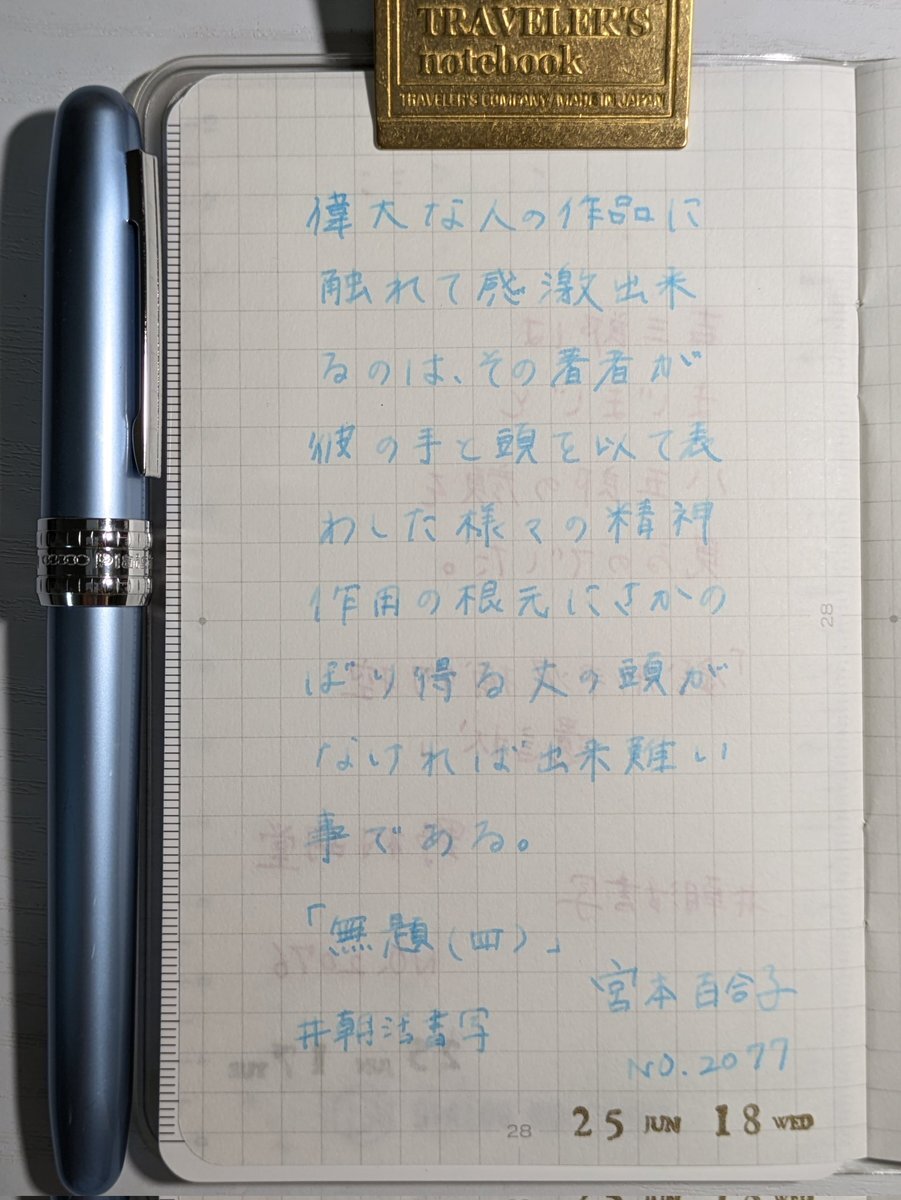 TRAVELER'S
notebook
TRAVELER'S COMPANY/MADE IN JAPAN
偉大な人の作品に
触れて感激出来
るのは、その著者が
彼の手と頭を以て表
わした様々の精神
作用の根元にさかの
ぼり得る丈の頭が
なければ出来難い
事である。
「無題(四)」
宮本百合子
#朝活書写
NO.2077
25 JUN 18 WED
28
28